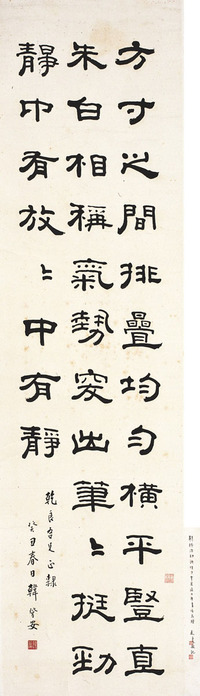 方寸之間排疊均勻橫平豎直
朱白相稱氣勢突出筆〻挺勁
靜中有放〻中有靜
乾良先生正隸
癸丑春日韓登安